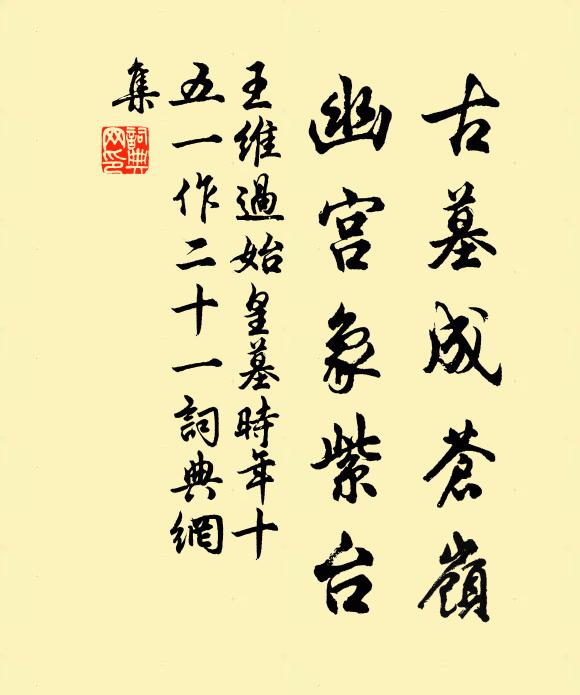 古墓成蒼嶺
幽宮象紫台
王維過始皇墓時年十
五一作二十一詞典網
集
詞典
网印